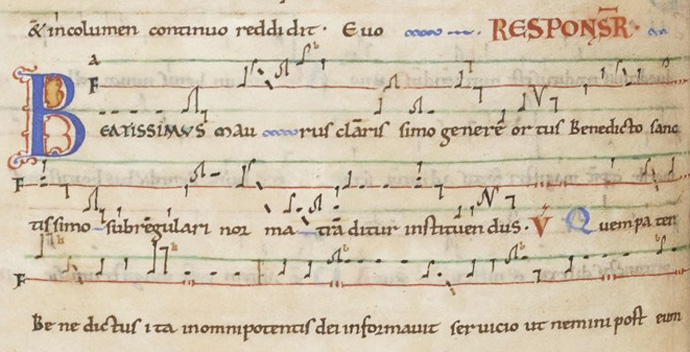 & incolumen continuo reddidit. Euo RESPONSR.
a
F
BEATISSIMVS Maurus claris simo genere ortus Benedicto sanc
F
tissimo subregulari nor ma tradditur instituendus. V Quem pa ter
F
Benedictus ita inomnipotentis dei informauit seruicio ut nemini post eum